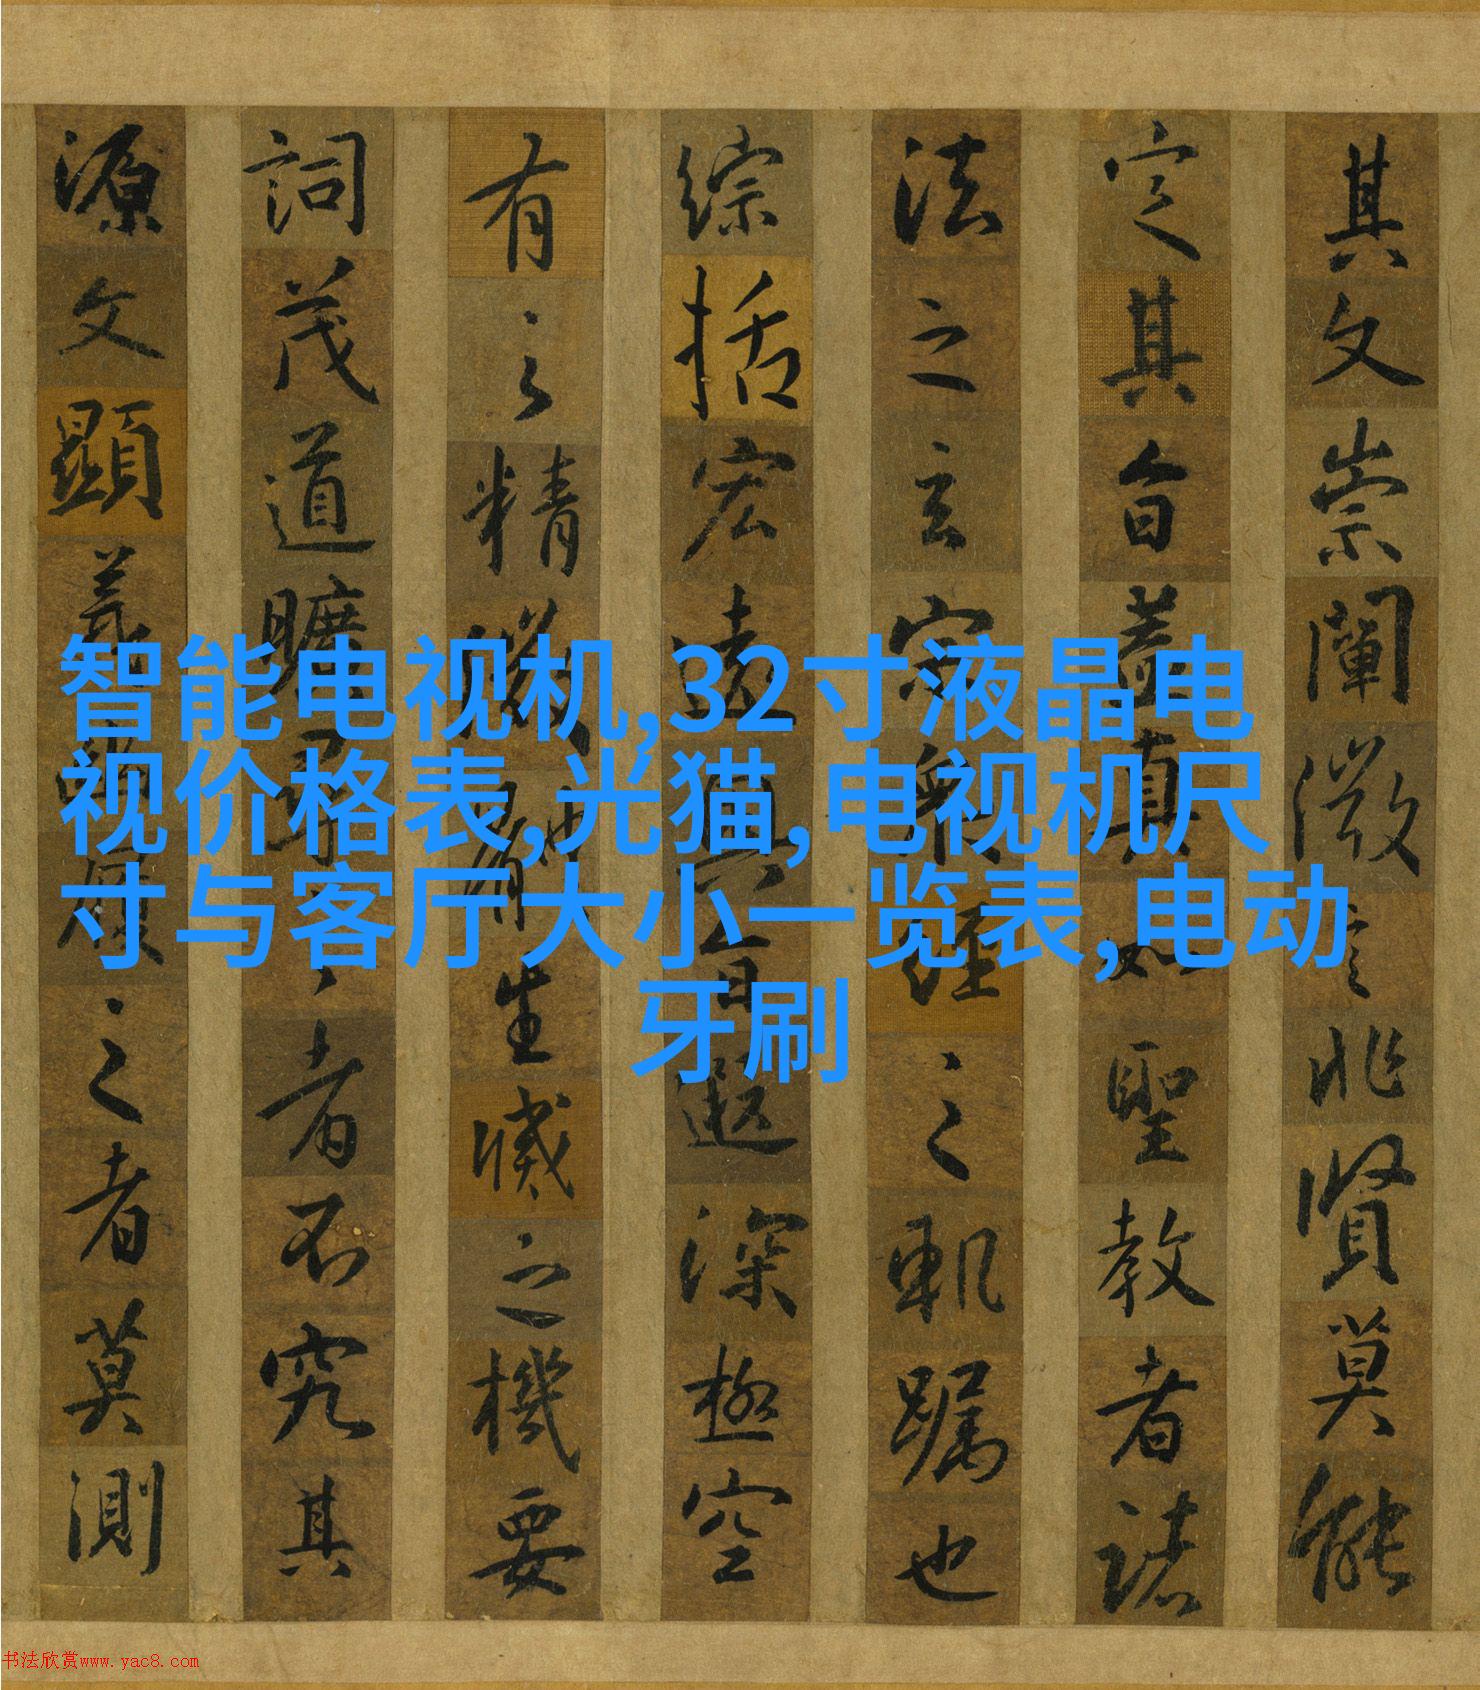 其文崇闡微言非賢莫能
定其旨蓋真如聖教者諸
法之玄宗眾經之軌躅也
綜括宏遠奧旨遐深極空
有之精微體生滅之機要
詞茂道曠尋之者不究其
源文顯義幽履之者莫測
智能电视机,32寸液晶电
视价格表,光猫,电视机尺
寸与客厅大小一览表,电动
牙刷
书法欣赏www.yac8.com